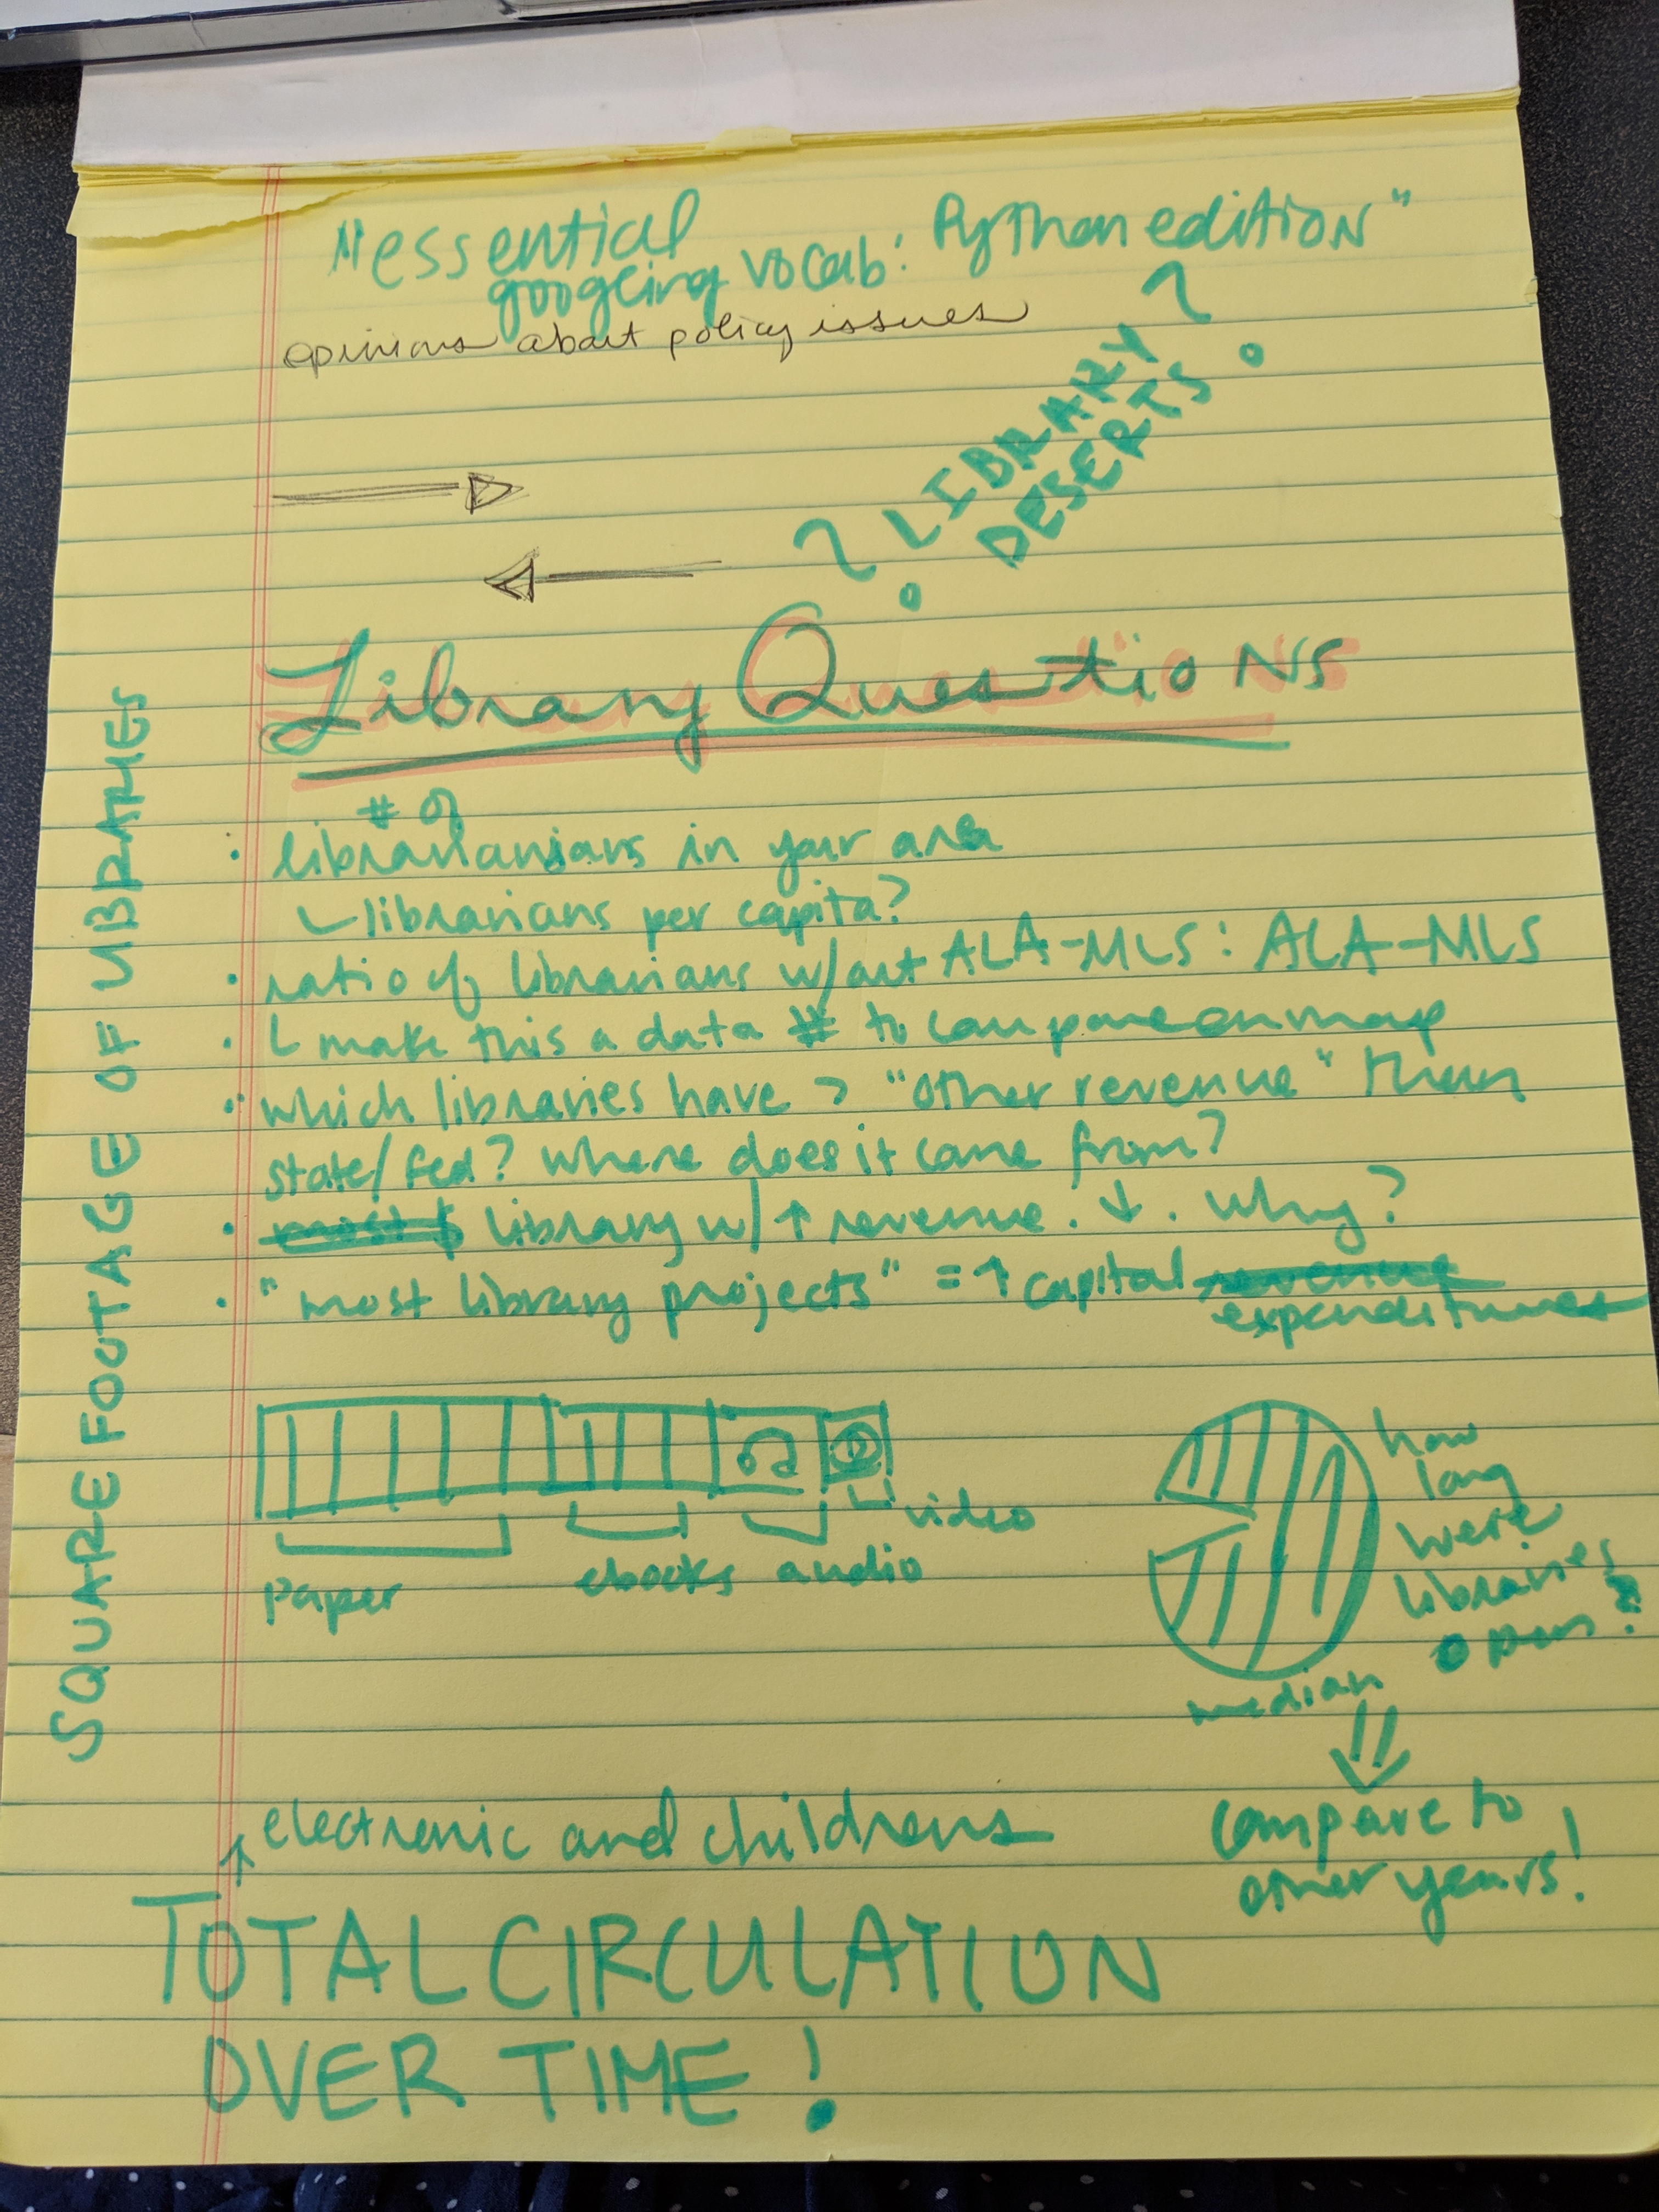 "essential
googling vocab: Python edition"
opinions about policy issues
? LIBRARY ?
DESERTS
Library Questions
# of
· librarianians in your area
librarians per capita?
· ratio of librarians w/out ALA-MLS : ALA-MLS
· make this a data # to compare on map
· which libraries have > "other revenue" than
state/fed? where does it come from?
· most $ library w/ ↑ revenue. ↓. Why?
· "most library projects" = ↑ capital revenue
expenditures
paper
ebooks
audio
video
how
long
were
libraries
open?
median
compare to
other years!
↑ electronic and childrens
TOTAL CIRCULATION
OVER TIME!
SQUARE FOOTAGE OF LIBRARIES